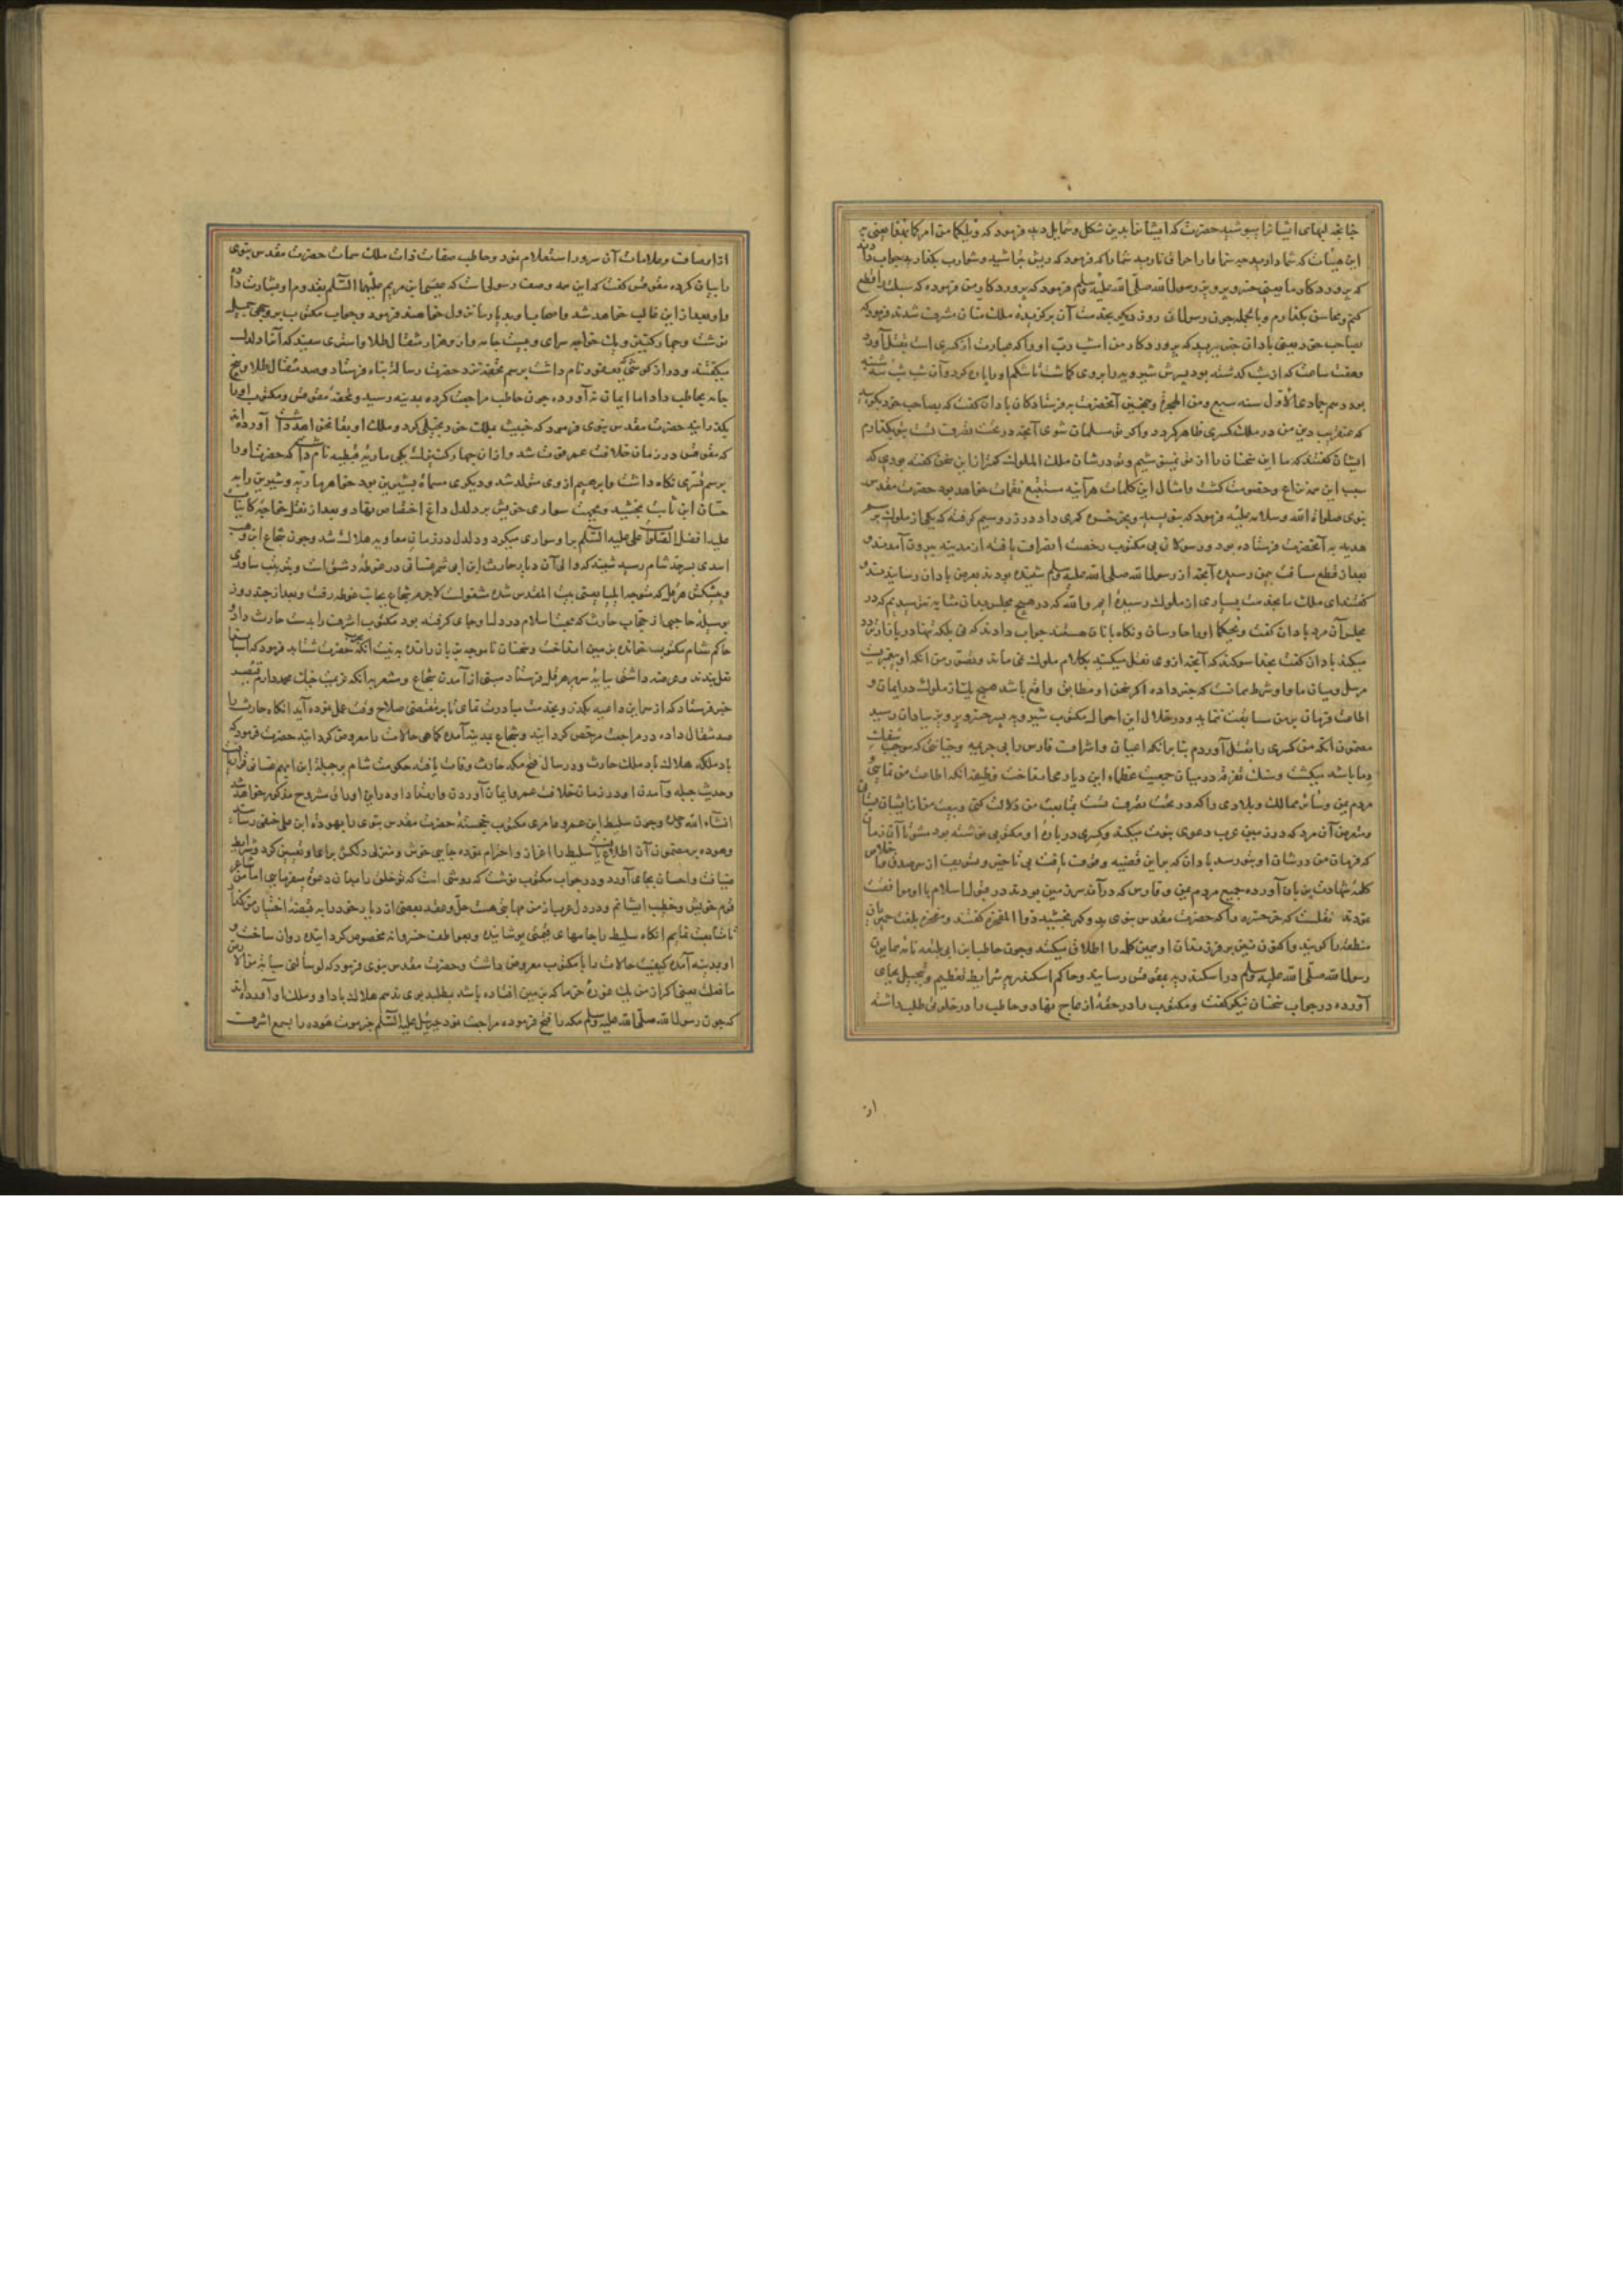 چنانچه لبهای ایشانرا بپوشید حضرت که ایشانرا بدین شکل و شمایل دید فرمود که ویلکما من امرکما بهذا یعنی
این هیئات که شما دارید شما را که فرمود که ریش بتراشید و شوارب بگذارید جواب
که پروردگار ما یعنی خسرو پرویز رسول الله صلی الله علیه وسلم فرمود که پروردگار من فرموده که سبلت را قطع
کنم و محاسن بگذارم و بالجمله چون رسولان روز دیگر بخدمت آن برگزیده ملک منان مشرف شدند فرمود که
بصاحب خود یعنی بادان خبر برید که پروردگار من امشب رب او را که عبارت از کسری است بقتل آورد
وهفت ساعت که از شب گذشته بود پسرش شیرویه را بروی گماشت تا شکم او پاره کرد و آن شب سه شنبه
بود دهم جمادی الاول سنه سبع من الهجرة و همچنین آنحضرت به فرستادگان بادان گفت که بصاحب خود بگویید
که عنقریب دین من در ملک کسری ظاهر گردد و اگر تو مسلمان شوی آنچه در تحت تصرف تست بتو بگذارم
ایشان گفتند که ما این سخنان را از تو و در شان ملک الملوک کمتر از این سخن گفته بودی که
سبب این همه نزاع و خصومت گشت و امثال این کلمات هرآینه مستتبع نقمات خواهد بود حضرت مقدس
نبوی صلوات الله وسلامه علیه فرمود که بنویسید و خرخسره کمری داد در زر و سیم گرفته که یکی از ملوک برسم
هدیه به آنحضرت فرستاده بود و رسولان بی مکتوب رخصت انصراف یافته از مدینه بیرون آمدند و
بعد از قطع مسافت بیمن رسیده آنچه از رسول الله صلی الله علیه وسلم شنیده بودند بعرض بادان رسانیدند و
گفتند ای ملک ما بخدمت بسیاری از ملوک رسیده ایم والله که در هیچ مجلس بدان مثابه نترسیدیم که در
مجلس آن مرد بادان گفت ویحکما او را حارسان و نگاه بانان هستند جواب دادند که نی بلکه تنها در بازار تردد
میکند بادان گفت بخدا سوگند که آنچه از وی نقل میکنید بکلام ملوک نمی ماند و تصور من آنکه او پیغمبریست
مرسل و میان ما و او شرط همانست که خبر داده اگر سخن او مطابق واقع باشد هیچ یک از ملوک در ایمان و
اطاعت فرمان بر من سابقت ننماید و در خلال این احوال مکتوب شیرویه پسر خسرو پرویز ببادان رسید
مضمون آنکه من کسری را بقتل آوردم بنا بر آنکه اعیان و اشراف فارس را بی جریمه و خیانتی که موجب
دما باشد میکشت و سنگ تفرقه در میان جمعیت عظماء این دیار می انداخت وظیفه آنکه اطاعت من نمایی و
مردم یمن و سایر ممالک و بلادی را که در تحت تصرف تست بمتابعت من دلالت کنی و بیعت من از ایشان بستان
و متعرض آن مرد که در زمین عرب دعوی نبوت میکند و کسری در باره او مکتوبی نوشته بود مشو تا آن زمان
که فرمان من در شان او بتو رسد بادان که بر این قضیه وقوف یافت بی تاخیر و تسویف از سر صدق و اخلاص
کلمه شهادت بر زبان آورده جمیع مردم یمن و فارس که در آن سرزمین بودند در قبول اسلام با او موافقت
نمودند نقلست که خرخسره را که حضرت مقدس نبوی بدو کمر بخشید ذوالمفخره گفتند و مفخره بلغت حمیریان
منطقه را گویند و اکنون نیز بر فرزندان او همین کلمه را اطلاق میکنند و چون حاطب ابن ابی بلتعه نامه همایون
رسول الله صلی الله علیه وسلم در اسکندریه بمقوقس رسانید و حاکم اسکندریه شرایط تعظیم و تبجیل بجای
آورده در جواب سخنان نیکو گفت و مکتوب را در حقه از عاج نهاد و حاطب را در خلوتی طلب داشته
از
از اوصاف و علامات آن سرور استعلام نمود و حاطب صفات ذات ملک سمات حضرت مقدس نبوی
را بیان کرده مقوقس گفت که این همه وصف رسولیست که عیسی ابن مریم علیهما السلام بقدوم او بشارت داده
و او بعد از این غالب خواهد شد و اصحاب او بدیار ما نزول خواهند فرمود و جواب مکتوب بر وجهی جمیل
نوشت و چهار کنیزک و یک خواجه سرای و بیست جامه وار و هزار مثقال طلا و استری سفید که آنرا دلدل
میگفتند و دراز گوشی که یعفور نام داشت برسم تحفه نزد حضرت رسالت پناه فرستاد و صد مثقال طلا و پنج
جامه بحاطب داد اما ایمان نیاورد و چون حاطب مراجعت کرده بمدینه رسید و تحفه مقوقس و مکتوب او را
بگذرانید حضرت مقدس نبوی فرمود که خبیث بملک خود بخیلی کرد و ملک او بقا نخواهد داشت آورده اند
که مقوقس در زمان خلافت عمر فوت شد و از آن چهار کنیزک یکی ماریه قبطیه نام داشت که حضرت او را
برسم سری نگاه داشت و ابراهیم از وی متولد شد و دیگری مسماة بشیرین بود خواهر ماریه و شیرین را به
حسان ابن ثابت بخشید و بجهت سواری خویش بر دلدل داغ اختصاص نهاد و بعد از نقل خواجه کاینات
علیه افضل الصلوات علی علیه السلام برا و سواری میکرد و دلدل در زمان معاویه هلاک شد و چون شجاع ابن وهب
اسدی بسرحد شام رسید شنید که والی آن دیار حارث ابن ابی شمر غسانی در غوطه دمشق است و بترتیب ساوری
و پیشکش هرقل که متوجه ایلیا یعنی بیت المقدس شده مشغولست لاجرم شجاع بجانب غوطه رفت و بعد از چند روز
بوسیله حاجبی از حجاب حارث که محبت اسلام در دل او جای گرفته بود مکتوب اشرف را بدست حارث داد و
حاکم شام مکتوب خوانده بر زمین انداخت و سخنان ناموجه بر زبان رانده به نیت آنکه بحرب حضرت شتابد فرمود که اسبان
نعل بندند و عرضه داشتی بپایه سریر هرقل فرستاد مبنی از آمدن شجاع و مشعر بر آنکه عزیمت جناب محمد دارم قیصر
خبر فرستاد که از سر این داعیه بگذر و بخدمت مبادرت نمای تا بر مقتضی صلاح وقت عمل نموده آید آنگاه حارث
صد مثقال داده در مراجعت مرخص گردانید و شجاع بمدینه آمده کماهی حالات را معروض گردانید حضرت فرمود که
باد ملکه هلاک باد ملک حارث و در سال فتح مکه حارث وفات یافته حکومت شام بر جبلة ابن ایهم غسانی قرار یافت
و حدیث جبله و آمدن او در زمان خلافت عمر و ایمان آوردن و ارتداد او در این اوراق مشروح مذکور خواهد شد
انشاء الله وحده و چون سلیط ابن عمرو عامری مکتوب خجسته حضرت مقدس نبوی را بهوذه ابن علی حنفی رسانید
و هوذه بر مضمون آن اطلاع یافت سلیط را اعزاز و احترام نموده جایی خوش و منزلی دلکش برای او تعیین کرد و شرایط
ضیافت و احسان بجای آورد و در جواب مکتوب نوشت که روشی است که تو خلق را بدان دعوت میفرمایی اما من شاعر
قوم خویش و خطیب ایشانم و در دل عرب از من مهابتی هست حل و عقد بعضی از دیار خود را به قبضه اختیار من گذار
تا متابعت نمایم آنگاه سلیط را بجامهای قیمتی پوشانیده و بعواطف خسروانه مخصوص گردانیده روان ساخت و
او بمدینه آمده کیفیت حالات را با مکتوب معروض داشت و حضرت مقدس نبوی فرمود که لو سألنی سیابة من الارض
ما فعلت یعنی اگر از من یک غوره خرما که بر زمین افتاده باشد بطلبد بوی ندهم هلاک باد او و ملک او آورده اند
که چون رسول الله صلی الله علیه وسلم مکه را فتح فرموده مراجعت نمود جبرئیل علیه السلام خبر موت هوذه را بسمع اشرف